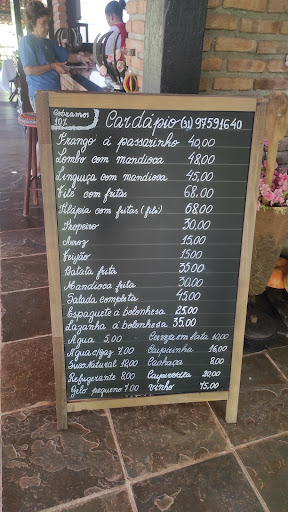 Cobramos 10%
Cardápio (31) 97591640
Frango á passarinho 40,00
Lombo com mandioca 48,00
Linguiça com mandioca 45,00
Filé com fritas 68,00
Tilápia com fritas (filé) 68,00
Tropeiro 30,00
Arroz 15,00
Feijão 15,00
Batata frita 35,00
Mandioca frita 30,00
Salada completa 45,00
Espaguete á bolonhesa 25,00
Lazanha á bolonhesa 35,00
Água 5,00 Cerveja em lata 10,00
Água c/gaz 7,00 Caipirinha 16,00
Suco Natural 12,00 Cachaça
Refrigerante 8,00 Caipivodka 20,00
Gelo pequeno 7,00 Vinho 45,00